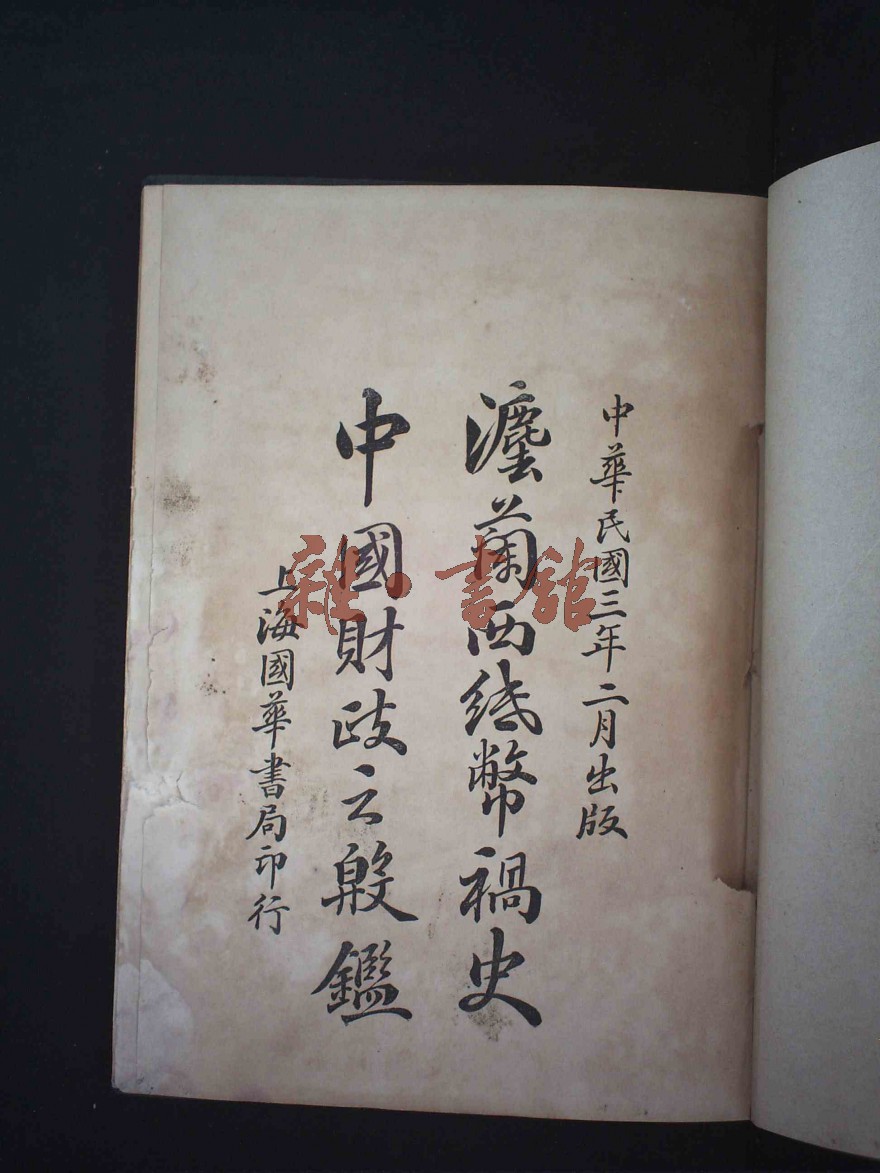 中華民國三年二月出版
灋蘭西紙幣禍史
中國財政之殷鑑
上海國華書局印行
雜·書館